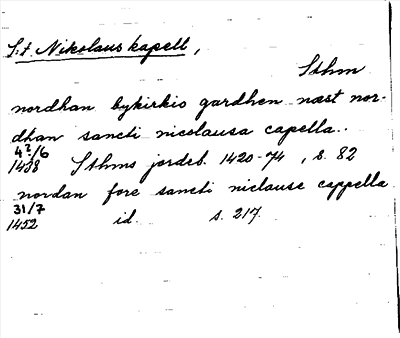 S:t Nikolaus kapell,
Sthm
nordhan bykirkio gardhen næst nor-
dhan sancti nicolausa capella..
4?/6
1438 Sthms jordeb. 1420-74, s. 82
nordan fore sancti niclause cappella
31/7
1452 id. s. 217.